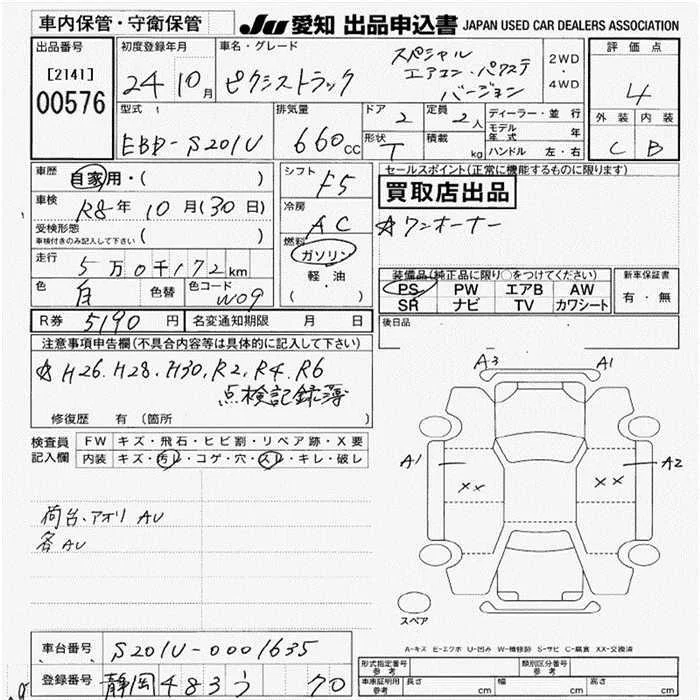 車内保管・守衛保管
JU 愛知 出品申込書 JAPAN USED CAR DEALERS ASSOCIATION
出品番号
[2141]
00576
初度登録年月
24 10月
車名・グレード
ピクシストラック
スペシャル
エアコン・パワステ
バージョン
2WD
・
4WD
評価点
4
外装 内装
C B
型式
EBD-S201U
排気量
660cc
ドア 2
定員 2人
形状 T
積載 kg
ディーラー・並行
モデル年式 年
ハンドル 左・右
車歴
自家用・( )
車検
R8年10月(30日)
受検形態
車検付きのみ記入して下さい ( )
走行
5万0千172km
色
白
色替
色コード
W09
シフト
F5
冷房
AC
燃料
ガソリン
軽・油
( )
セールスポイント(正常に機能するものに限ります)
買取店出品
☆ワンオーナー
装備品(純正品に限り○をつけてください)
PS PW エアB AW
SR ナビ TV カワシート
新車保証書
有・無
R券 5190円
名変通知期限 月 日
後日品
注意事項申告欄(不具合内容等は具体的に記入して下さい)
☆H26.H28.H30.R2.R4.R6
点検記録簿
修復歴 有 (箇所 )
検査員
記入欄
FW キズ・飛石・ヒビ割・リペア跡・X要
内装 キズ・汚レ・コゲ・穴・スレ・キレ・破レ
荷台、アオリ AU
各AU
A3 A1
A1 A2
XX XX
スペア
A-キズ E-エクボ U-凹み W-補修跡 S-サビ C-腐食 XX-交換済
車台番号
S201U-0001635
登録番号
静岡 483 う 70
形式指定番号
参考
類別区分番号
参考
車庫証明用
参考
長さ cm
幅 cm
高さ cm